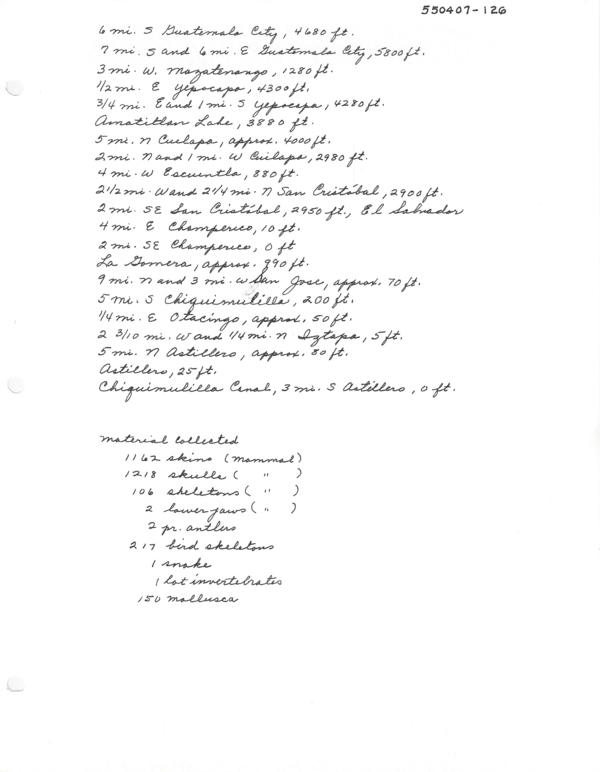 550407-126
6 mi. S Guatemala City, 4680 ft.
7 mi. S and 6 mi. E Guatemala City, 5800 ft.
3 mi. W. Mazatenango, 1280 ft.
1/2 mi. E Yepocapa, 4300 ft.
3/4 mi. E and 1 mi. S Yepocapa, 4280 ft.
Amatitlan Lake, 3880 ft.
5 mi. N Cuilapa, approx. 4000 ft.
2 mi. N and 1 mi. W Cuilapa, 2980 ft.
4 mi. W Escuintla, 880 ft.
2 1/2 mi. W and 2 1/4 mi. N San Cristóbal, 2900 ft.
2 mi. SE San Cristóbal, 2950 ft., El Salvador
4 mi. E Champerico, 10 ft.
2 mi. SE Champerico, 0 ft
La Gomera, approx. 990 ft.
9 mi. N and 3 mi. W San Jose, approx. 70 ft.
5 mi. S Chiquimulilla, 200 ft.
1/4 mi. E Otacingo, approx. 50 ft.
2 3/10 mi. W and 1/4 mi. N Iztapa, 5 ft.
5 mi. N Astillero, approx. 80 ft.
Astillero, 25 ft.
Chiquimulilla Canal, 3 mi. S Astillero, 0 ft.
Material collected
1162 skins (mammal)
1218 skulls ( " )
106 skeletons ( " )
2 lower jaws ( " )
2 pr. antlers
217 bird skeletons
1 snake
1 lot invertebrates
150 mollusca